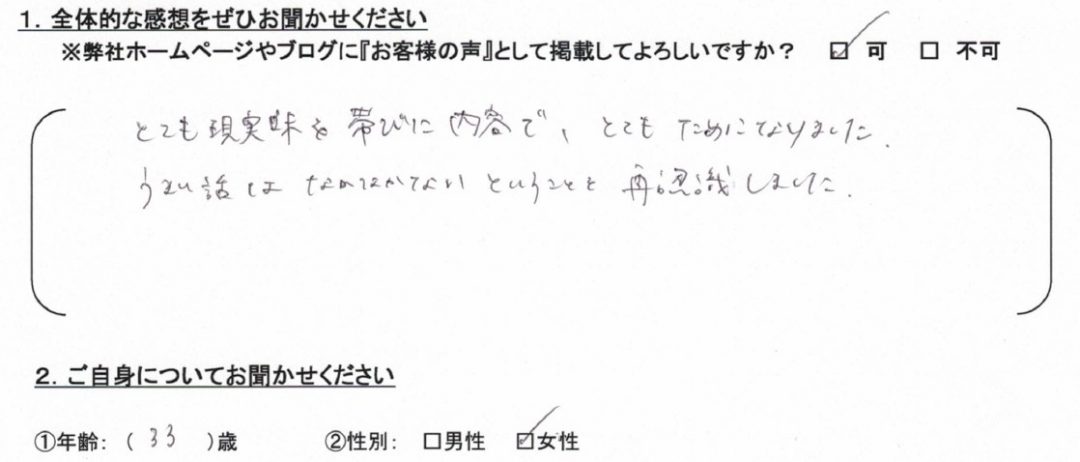 1. 全体的な感想をぜひお聞かせください
※弊社ホームページやブログに『お客様の声』として掲載してよろしいですか？ ☑ 可 □ 不可
とても現実味を帯びた内容で、とてもためになりました.
うまい話はなかなかないということを再認識しました.
2. ご自身についてお聞かせください
①年齢: ( 33 )歳 ②性別: □男性 ☑女性